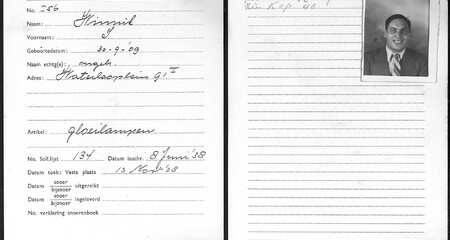 No. 256
Naam: Winnik
Voornaam: J
Geboortedatum: 30-9-09
Naam echtg(e).: ongeh.
Adres: Waterlooplein 91 I
Artikel: gloeilampen
No. Soll.lijst 134 Datum inschr. 8 Juni '38
Datum toek: Vaste plaats 13 Nov '38
Datum snoer bijsnoer uitgereikt
Datum snoer bijsnoer ingeleverd
No. verklaring snoerenboek
Kap '40